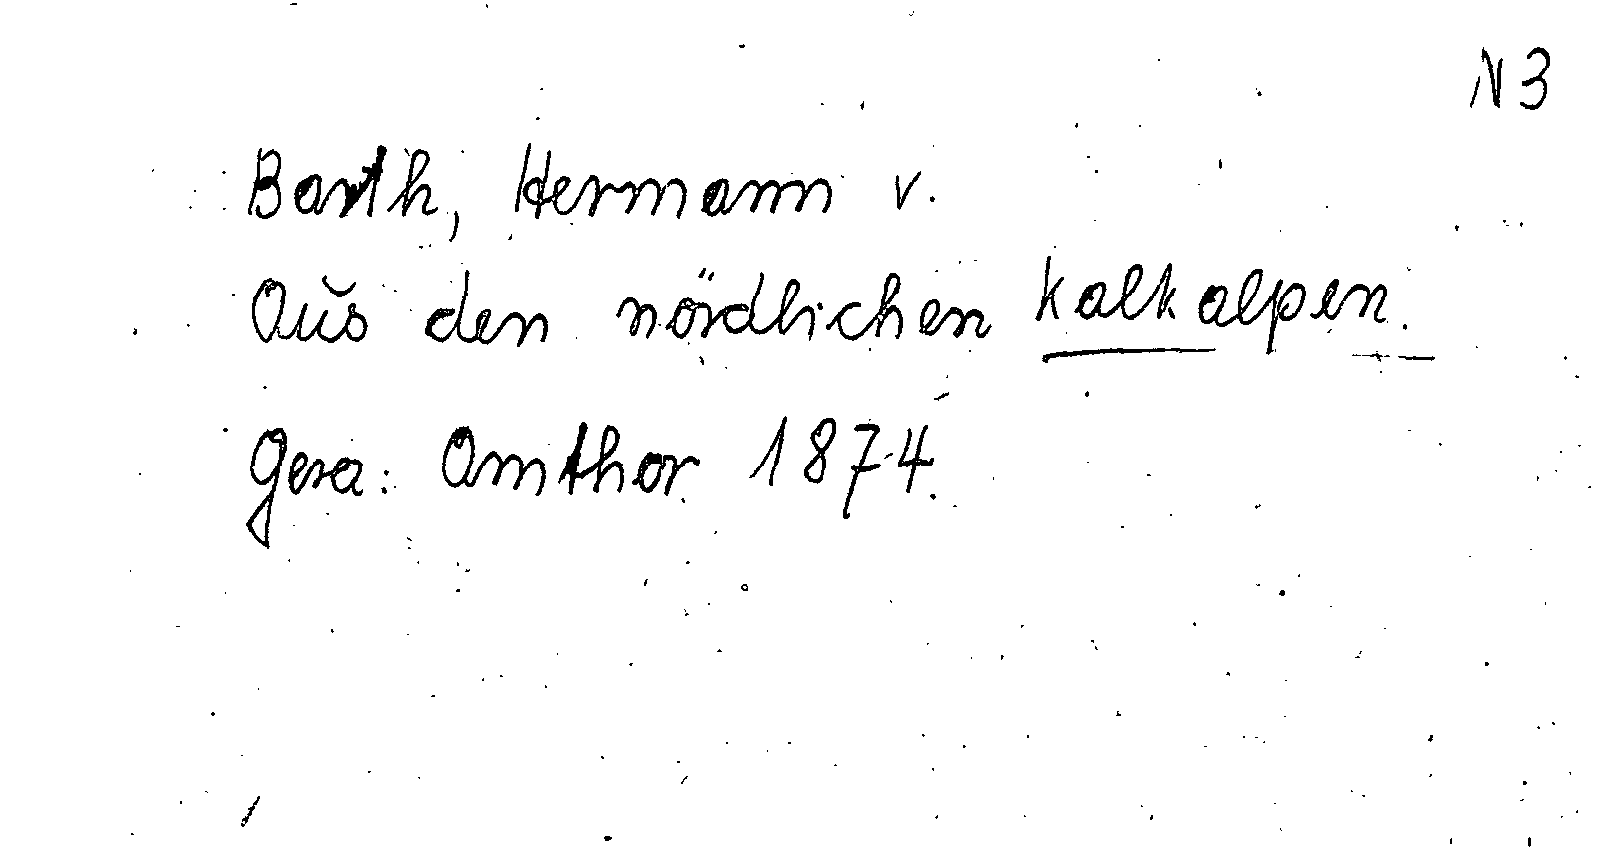 N3
Barth, Hermann v.
Aus den nördlichen Kalkalpen.
Gera: Amthor 1874.